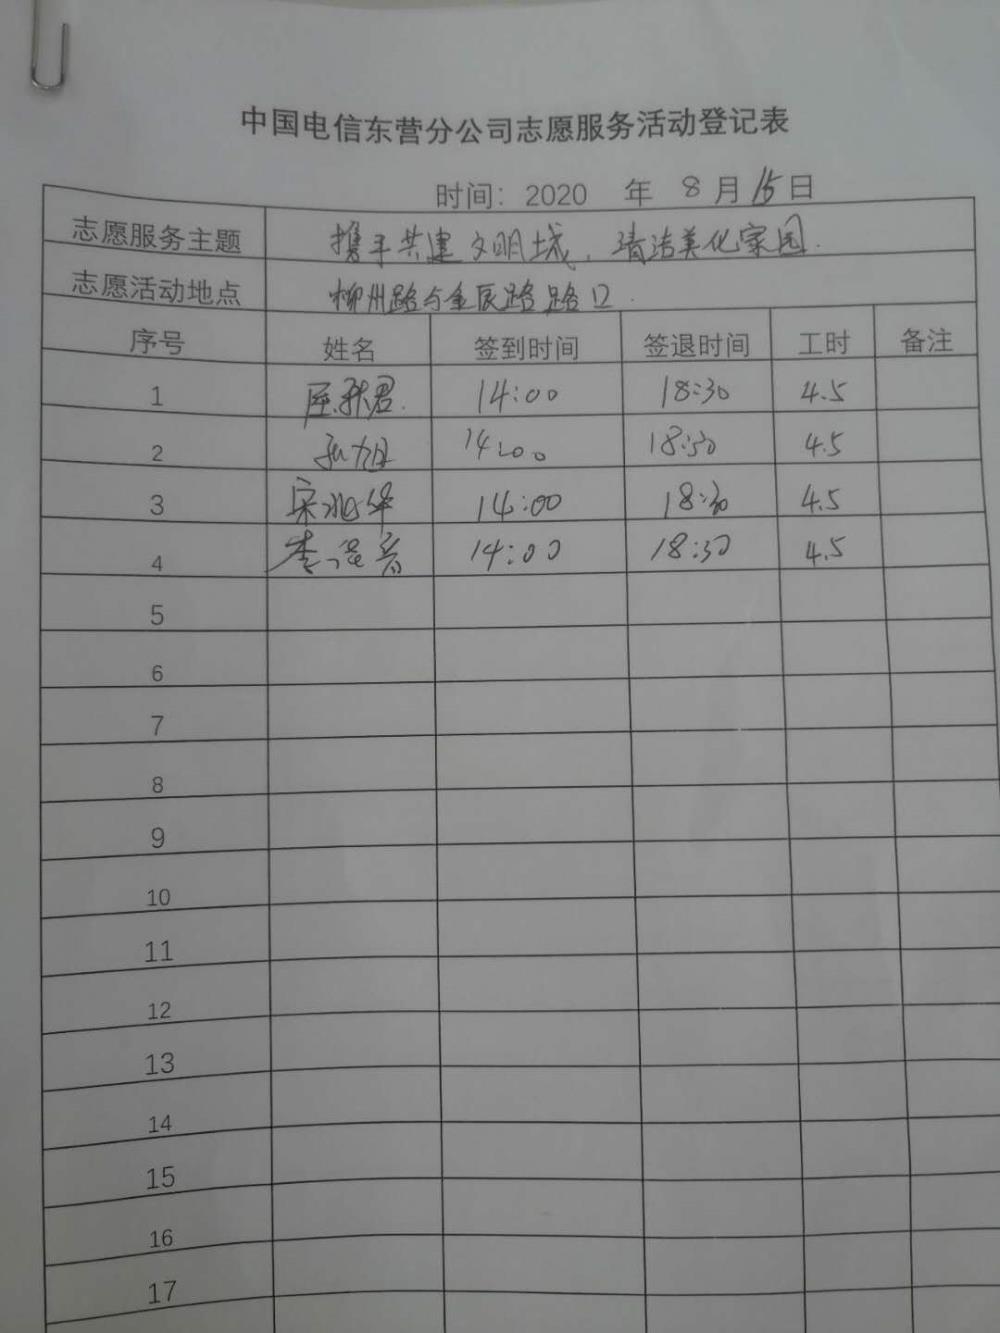 中国电信东营分公司志愿服务活动登记表
时间：2020 年 8 月 15 日
志愿服务主题 携手共建文明城，清洁美化家园.
志愿活动地点 柳州路与金辰路路口.
序号 姓名 签到时间 签退时间 工时 备注
1 14:00 18:30 4.5
2 孙旭 14:00 18:30 4.5
3 宋兆华 14:00 18:30 4.5
4 李 14:00 18:30 4.5
5
6
7
8
9
10
11
12
13
14
15
16
17